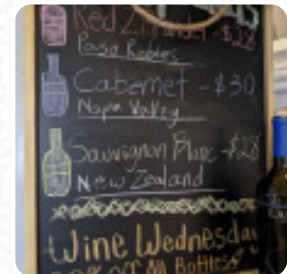 Red Zinfandel - $28
Paso Robles
Cabernet - $30
Napa Valley
Sauvignon Blanc - $28
New Zealand
Wine Wednesday
off All Bottles